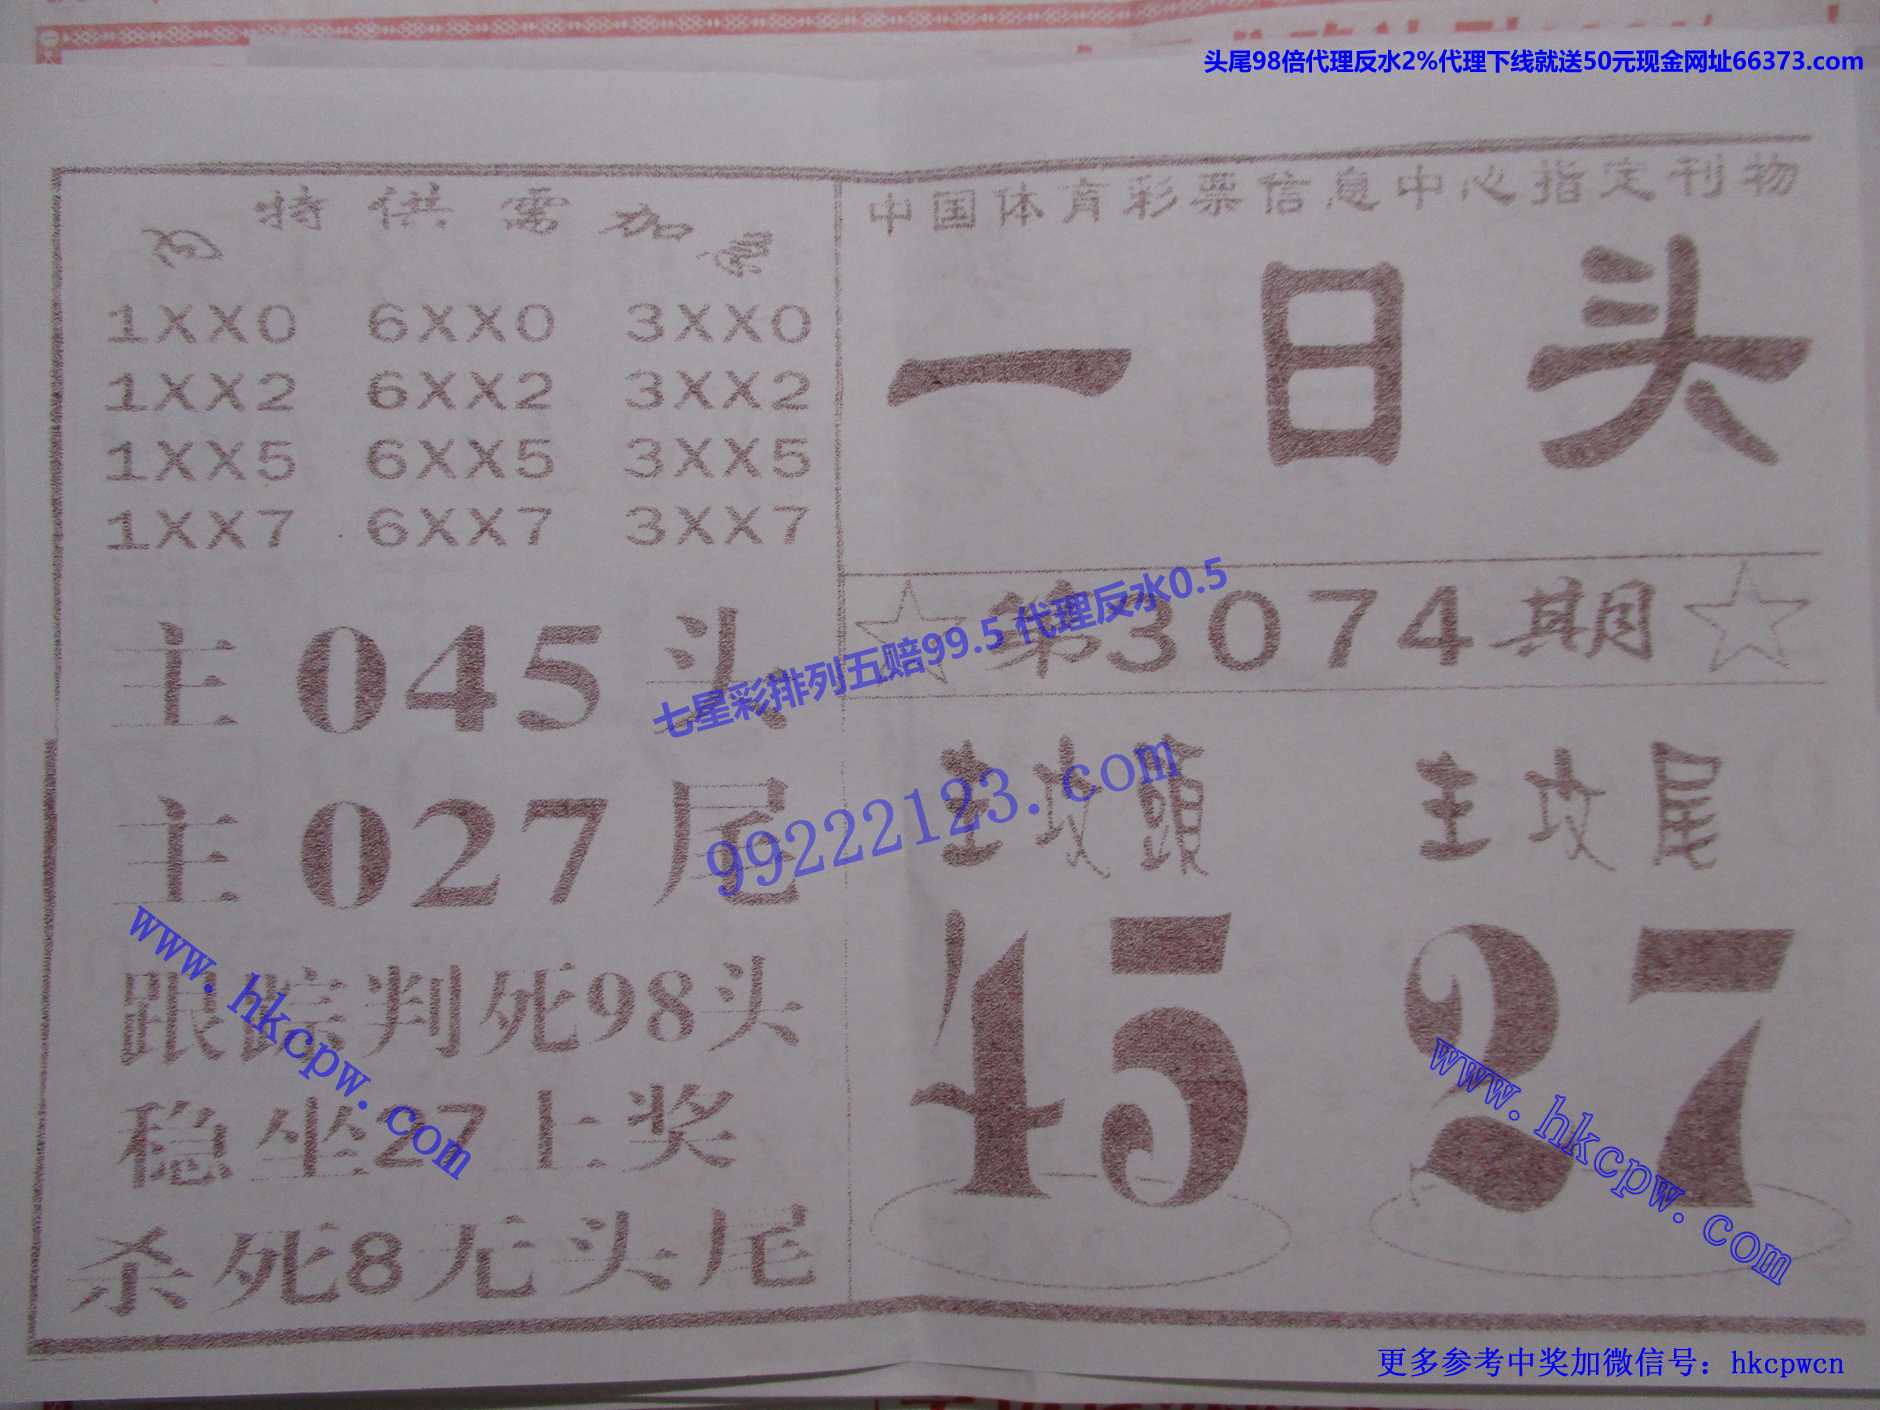 头尾98倍代理反水2%代理下线就送50元现金网址66373.com
特供需加
1XX0 6XX0 3XX0
1XX2 6XX2 3XX2
1XX5 6XX5 3XX5
1XX7 6XX7 3XX7
主045头
主027尾
跟踪判死98头
稳坐27上奖
杀死8无头尾
中国体育彩票信息中心指定刊物
一日头
第3074期
主攻頭
45
主攻尾
27
七星彩排列五赔99.5 代理反水0.5
99222123.com
www.hkcpw.com
www.hkcpw.com
更多参考中奖加微信号：hkcpwcn